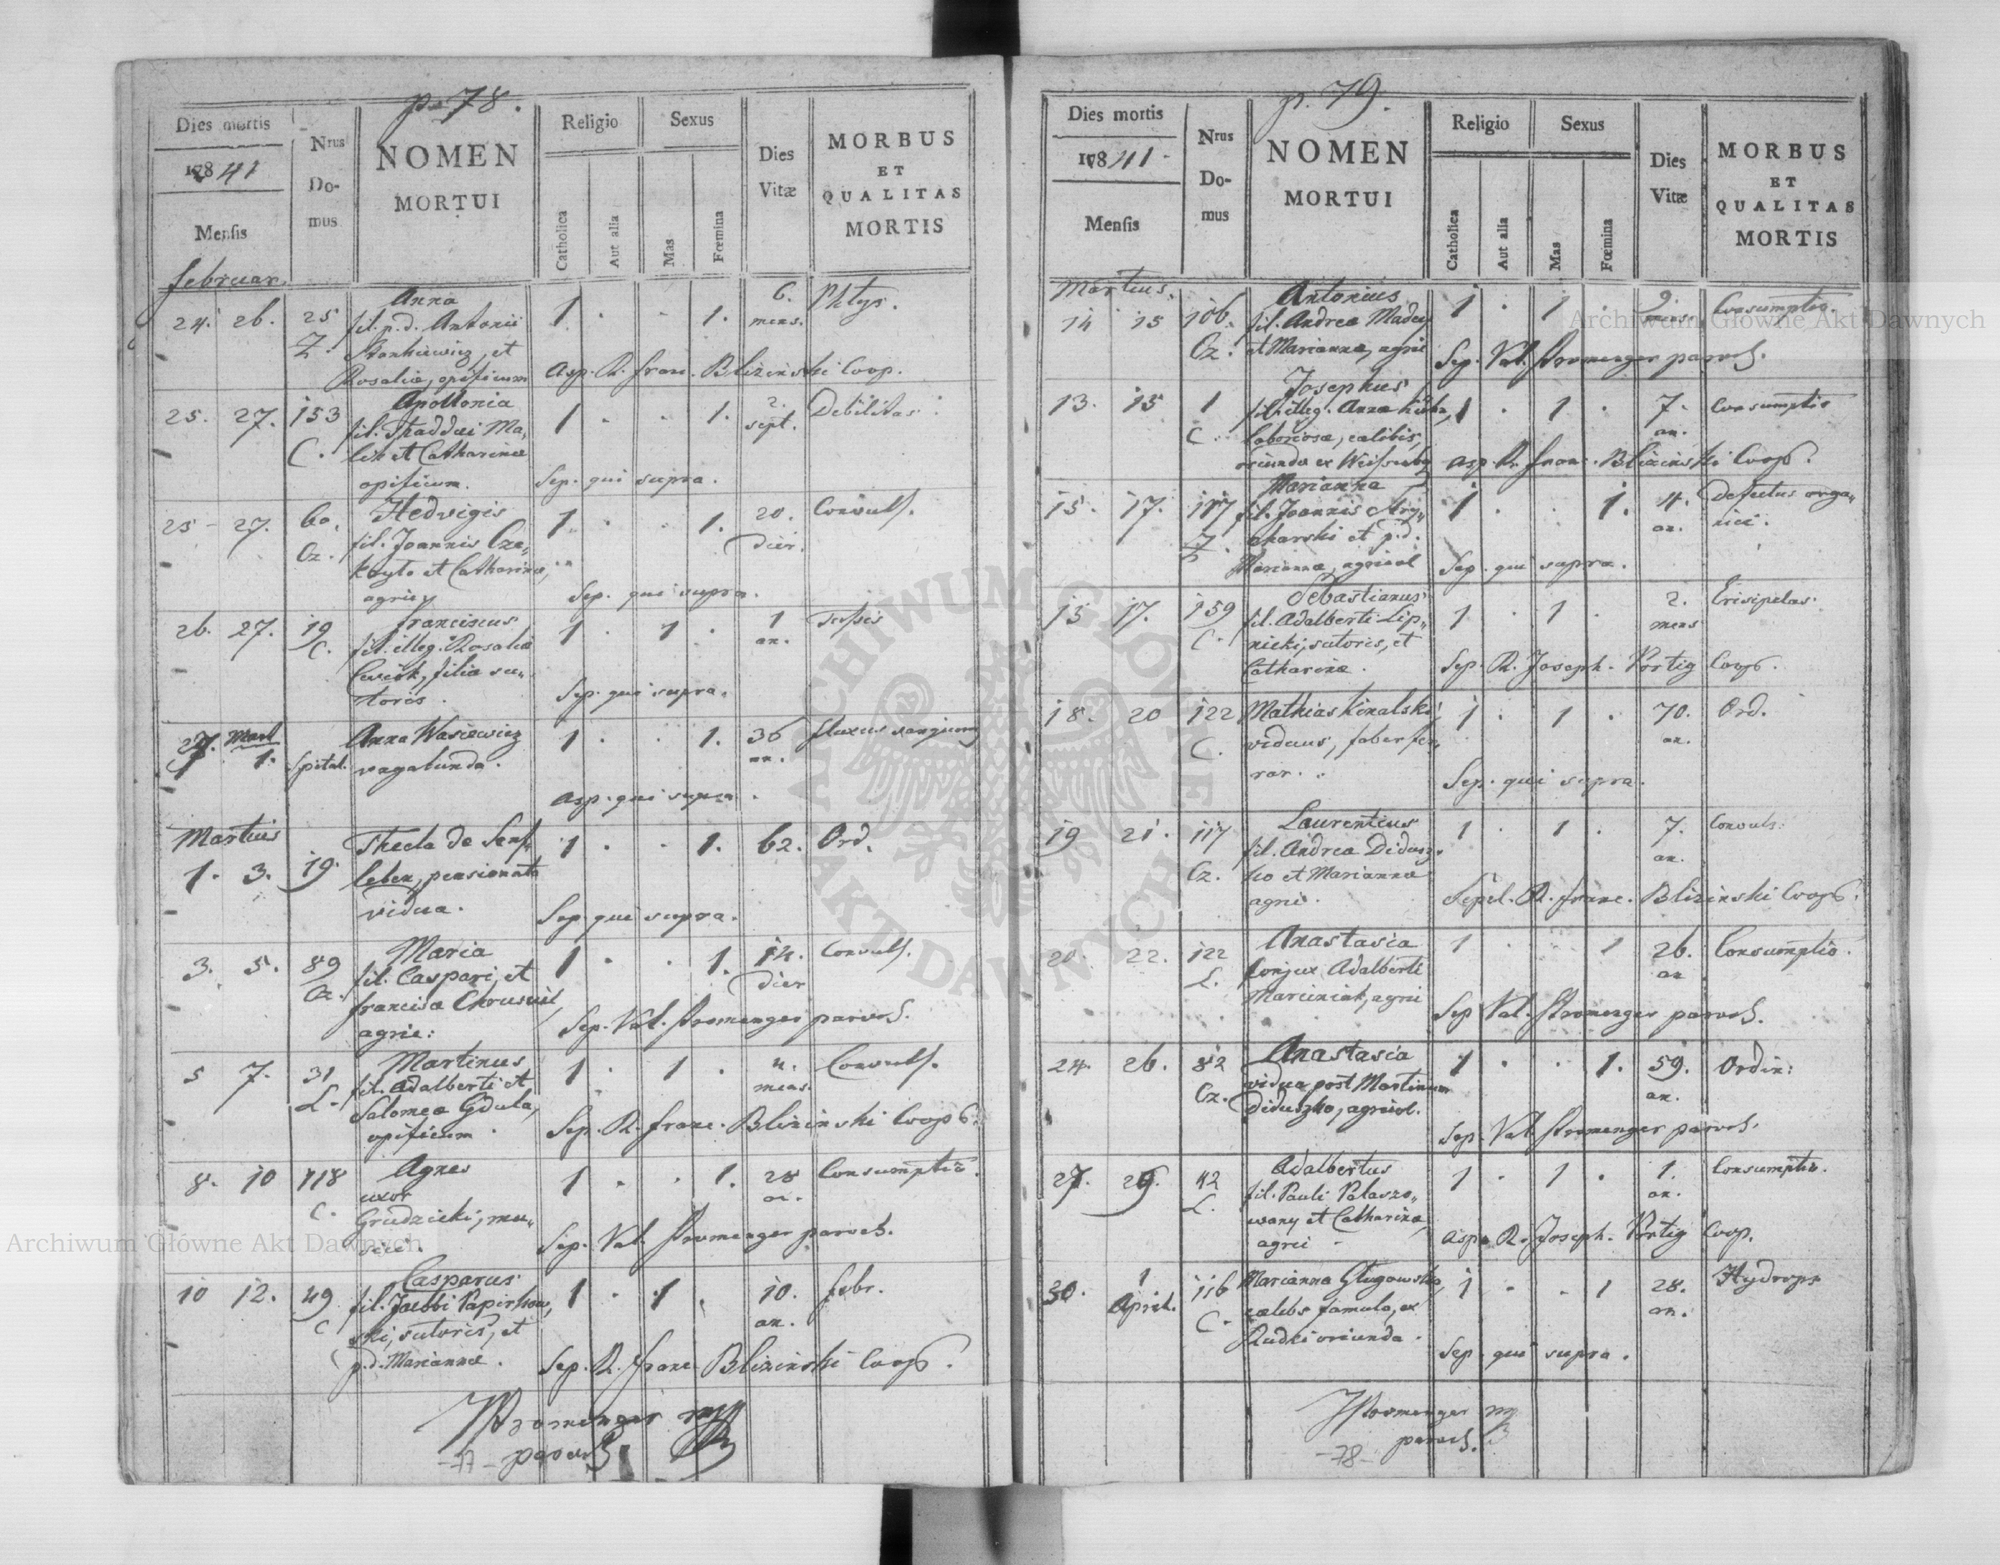 p. 78.
Dies mortis
1841
Mensis
Nrus
Do-
mus
NOMEN
MORTUI
Religio
Catholica
Aut alia
Sexus
Mas
Fœmina
Dies
Vitæ
MORBUS
ET
QUALITAS
MORTIS
Februar.
24. 26. 25 Anna 1 . . 1. 6. Phtys.
Z. fil. p.d. Antonii mens.
Stankiewicz, et
Rosaliæ, opificum Asp. R. Franc. Bliziński Coop.
25. 27. 153 Apollonia 1 . . 1. 2. Debilitas.
C. fil. Thaddæi Ma- sept.
lik et Catharinæ
opificum. Sep. qui supra.
25 - 27. 60. Hedvigis 1 . . 1. 20. Convuls.
Cz. fil. Joannis Cze- dier.
kayło et Catharinæ,
agric. Sep. qui supra.
26. 27. 19 Franciscus 1 . 1 . 1 Tussis
C. fil. illeg. Rosaliæ an.
Cwiok, filiæ su-
toris. Sep. qui supra.
27. Mart Anna Wasiewicz 1 . . 1. 36 fluxus sanguin
1. Spital. vagabunda. an.
Asp. qui supra.
Martius
1. 3. 19. Thecla de Senf- 1 . . 1. 62. Ord.
leben, pensionata
vidua. Sep. qui supra.
3. 5. 89 Maria 1 . . 1. 14. Convuls.
Cz. fil. Caspari, et dier
Franciscæ
agric: Sep. Val. Stromenger paroch.
5 7. 31 Martinus 1 . 1 . mens. Convuls.
L. fil. Adalberti et
Salomeæ Gdula,
opificum. Sep. R. Franc. Bliziński Coop.
8. 10 118 Agnes 1 . . 1. 28 Consumptio.
C. uxor an.
Grudzicki, mu-
sici. Sep. Val. Stromenger paroch.
10 12. 49 Casparus 1 . 1 . 10. febr.
C fil. Jacobi Papirkow- an.
ski, sutoris, et
p.d. Mariannæ. Sep. R. Franc Bliziński Coop.
VStromenger mp
paroch
-77-
p. 79.
Dies mortis
1841.
Mensis
Nrus
Do-
mus
NOMEN
MORTUI
Religio
Catholica
Aut alia
Sexus
Mas
Fœmina
Dies
Vitæ
MORBUS
ET
QUALITAS
MORTIS
Martius.
14 15 106. Antonius 1 . 1 . 9. Consumptio.
Cz. fil. Andreæ Madey mens.
et Mariannæ, agric Sep. Val. Stromenger paroch.
13. 15 1 Josephus 1 . 1 . 7. Consumptio
C. fil. illeg. Annæ an.
laboriosæ, cælibis,
oriunda ex Asp R. Franc. Bliziński Coop.
15. 17. 117 Marianna 1 . . 1. 4. Defectus orga-
Z. fil. Joannis Mry- an. nici.
charski et p.d.
Mariannæ, agricol Sep. qui supra.
15 17. 159 Sebastianus 1 . 1 . 2. Erisipelas.
C. fil. Adalberti Lip- mens
nicki, sutoris, et
Catharinæ. Sep. R. Joseph. Portig Coop.
18. 20 122 Mathias Kinalski, 1 . 1 . 70. Ord.
C. viduus, faber fer- an.
rar. Sep. qui supra.
19 21. 117 Laurentius 1 . 1 . 7. Convuls.
Cz. fil. Andreæ Didusz- an.
ko et Mariannæ
agric. Sepel. R. Franc. Bliziński Coop.
20. 22. 122 Anastasia 1 . . 1 26. Consumptio.
L. Conjux Adalberti an
Marciniak, agric Sep Val. Stromenger paroch.
24. 26. 82 Anastasia 1 . . 1. 59. Ordin:
Cz. vidua post Martinum an.
Diduszko, agricol. Sep. Val. Stromenger paroch.
27. 29. 42 Adalbertus 1 . 1 . 1. Consumptio.
L. fil. Pauli Pałaszo- an.
wany et Catharinæ,
agric Asp. R. Joseph. Portig Coop.
30. 1 116 Marianna Głogowska, 1 . . 1 28. Hydrops
April. C. cælebs famula, ex an.
Rudki oriunda. Sep. qui supra.
VStromenger mp
paroch.
-78-
Archiwum Główne Akt Dawnych
Archiwum Główne Akt Dawnych
ARCHIWUM GŁÓWNE AKT DAWNYCH